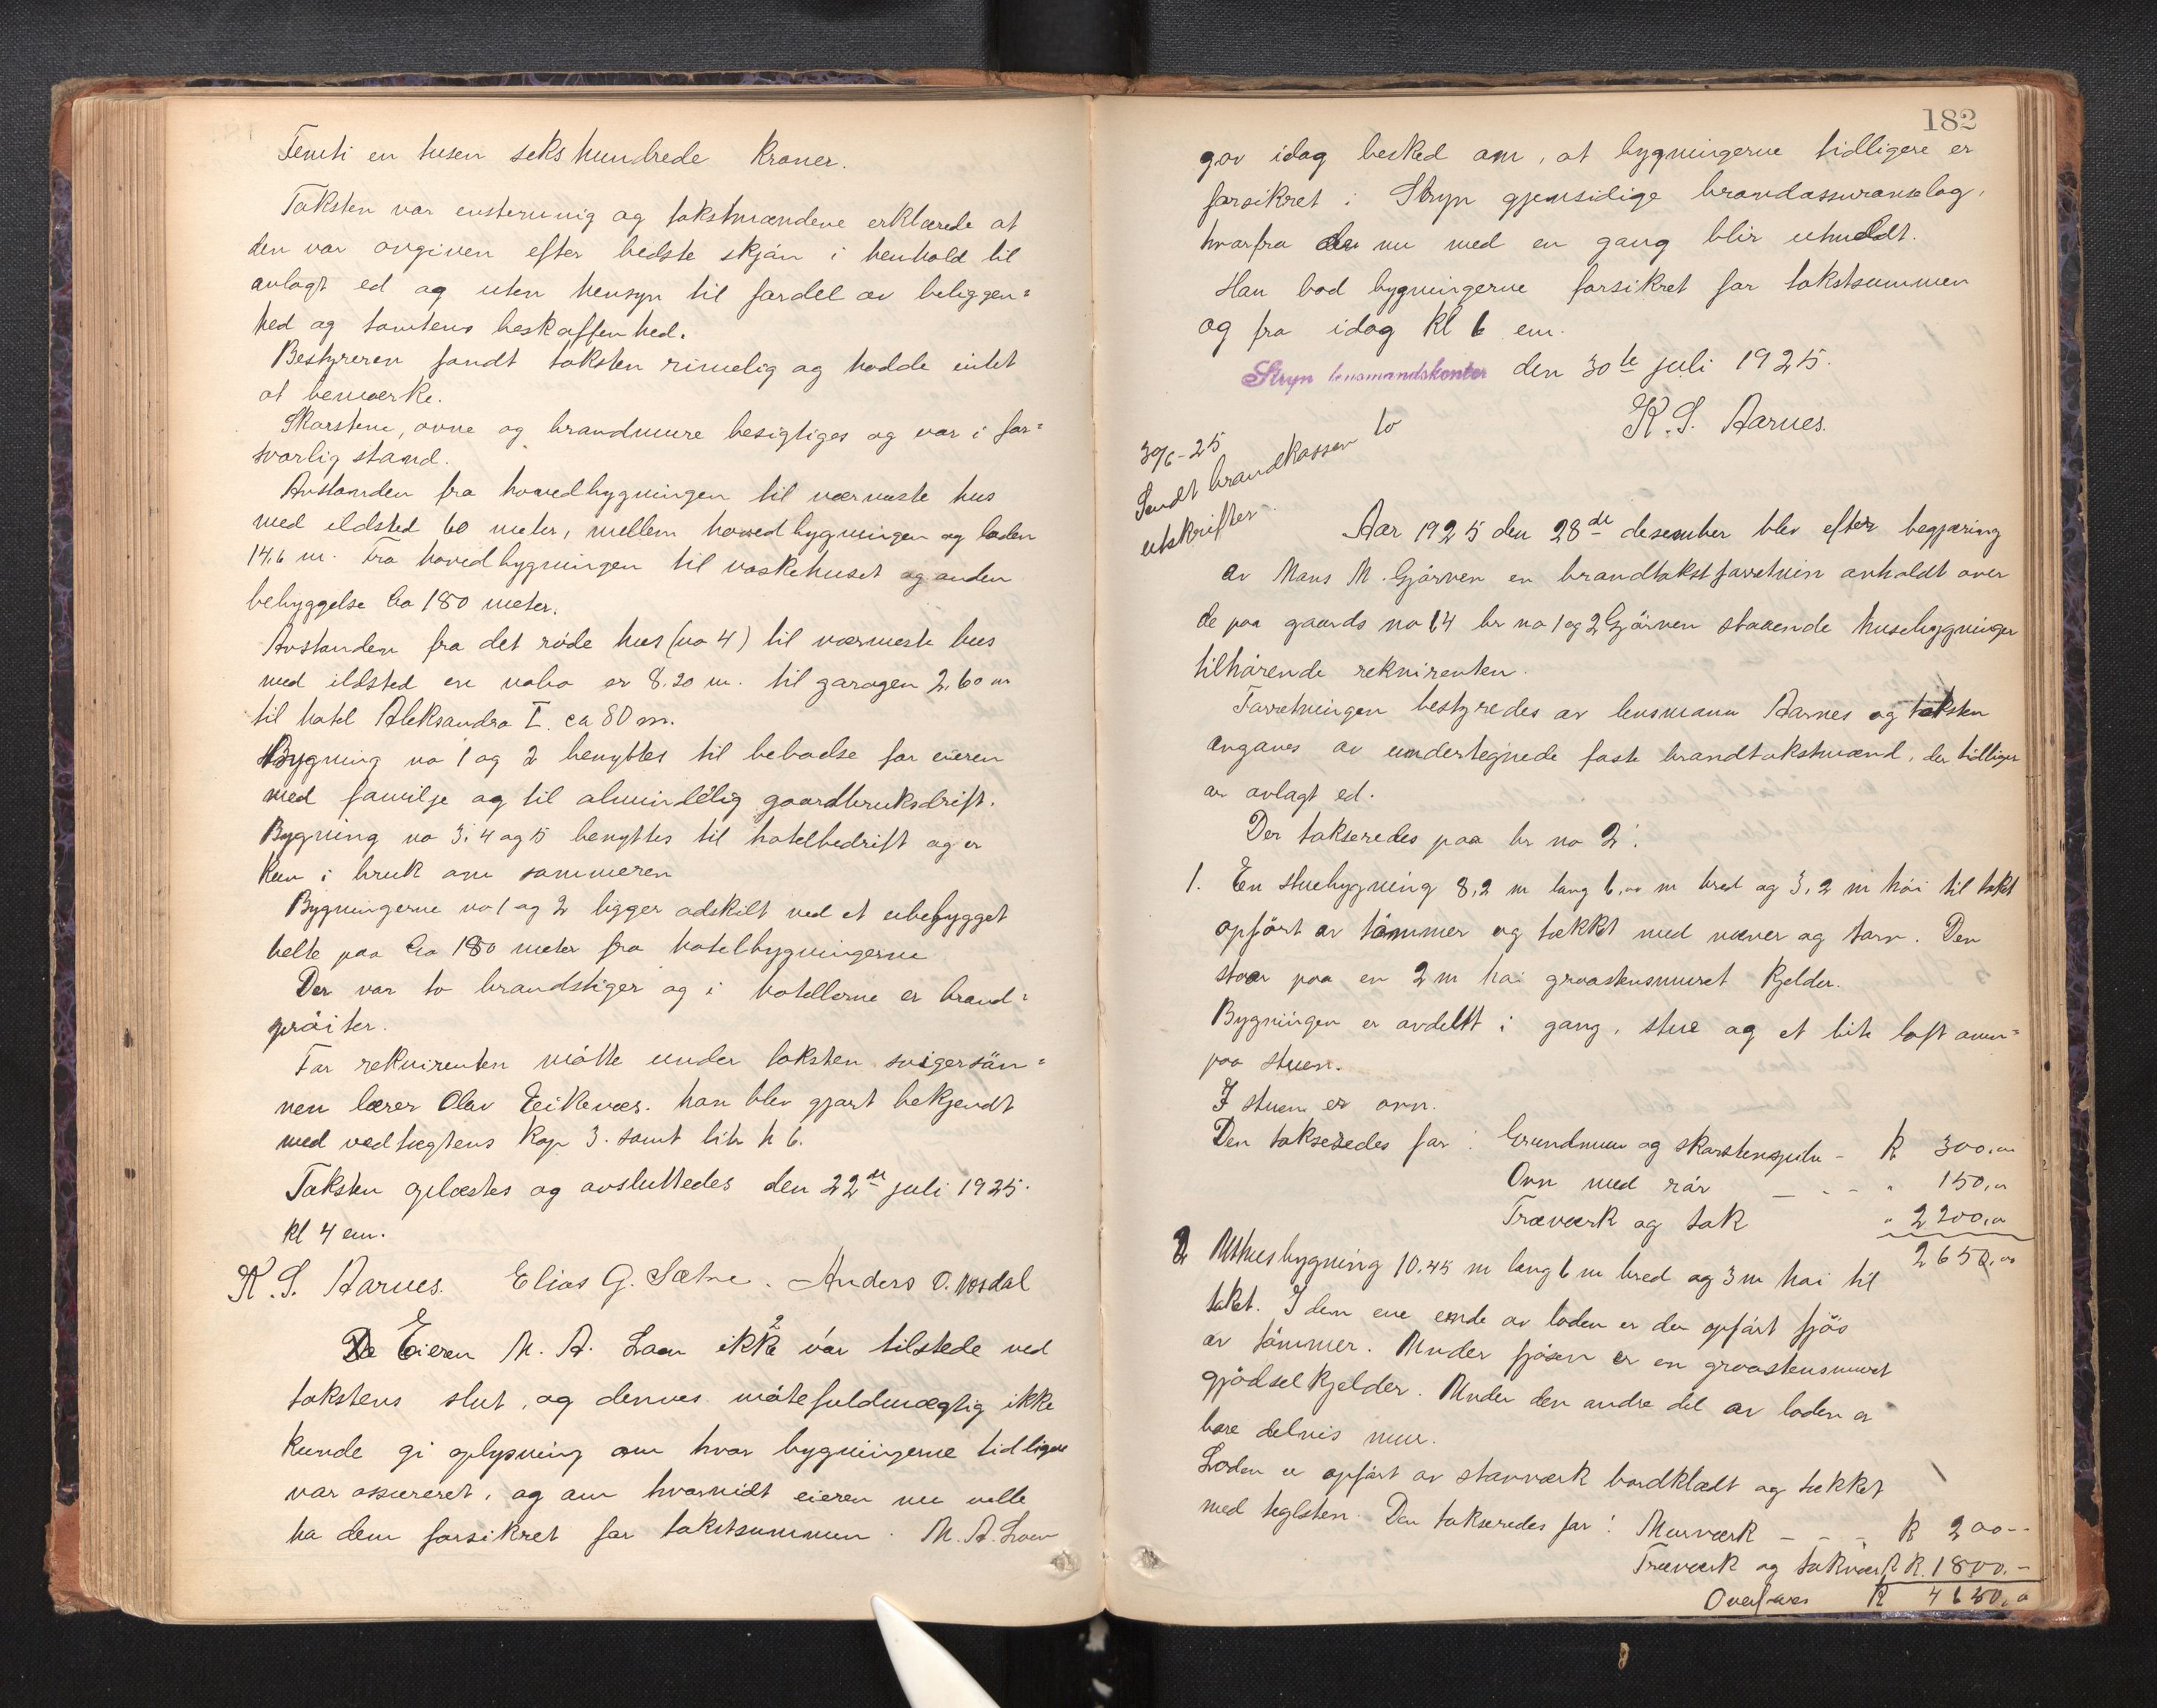 Femti en tusen seks hundrede kroner.
Taksten var enstemmig og takstmændene erklærede at
den var avgiven efter bedste skjön i henhold til
avlagt ed og uten hensyn til fordel av beliggen=
hed og tomtens beskaffenhed.
Bestyreren fandt taksten rimelig og hadde intet
at bemærke.
Skorstene, ovne og brandmure besigtiges og var i for=
svarlig stand.
Avstanden fra hovedbygningen til nærmeste hus
med ildsted 60 meter, mellem hovedbygningen og laden
14,6 m. Fra hovedbygningen til vaskehuset og anden
bebyggelse ca 180 meter.
Avstanden fra det röde hus (no 4) til nærmeste hus
med ildsted en nabo er 8.20 m. til garagen 2,60 m
til hotel Aleksandra I. ca 80 m.
Bygning no 1 og 2 benyttes til beboelse for eieren
med familje og til almindelig gaardbruksdrift.
Bygning no 3, 4 og 5 benyttes til hotelbedrift og er
kun i bruk om sommeren
Bygningerne no 1 og 2 ligger adskilt ved et ubebygget
belte paa ca 180 meter fra hotelbygningerne
Der var to brandstiger og i hotellerne er brand=
spröiter.
For rekvirenten mötte under taksten svigersön=
nen lærer Olav Eikenæs. han blev gjort bekjendt
med vedtægtens kap 3. samt litr h 6.
Taksten oplæstes og avsluttedes den 22de juli 1925.
kl 4 em.
K. S. Aarnes. Elias G. Sætre. Anders O. Mosdal
Da Eieren M. A. Loen ikke var tilstede ved
takstens slut, og dennes mötefuldmægtig ikke
kunde gi oplysning om hvor bygningerne tidligere
var assureret, og om hvorvidt eieren nu vilde
ha dem forsikret for takstsummen. M. A. Loen
182
gav idag besked om, at bygningerne tidligere er
forsikret i Stryn gjensidige brandassuranselag,
hvorfra de nu med en gang blir utmeldt.
Han bad bygningerne forsikret for takstsummen
og fra idag kl 6 em.
Stryn lensmandskontor den 30te juli 1925.
K. S. Aarnes.
30/6-25
Sendt brandkassen to
utskrifter.
Aar 1925 den 28de desember blev efter begjæring
av Mons M. Gjörven en brandtakstforretnin avholdt over
de paa gaards no 14 br no 1 og 2 Gjörven staaende husebygninger
tilhörende rekvirenten.
Forretningen bestyredes av lensmann Aarnes og taksten
avgaves av undertegnede faste brandtakstmænd, der tidliger
har avlagt ed.
Der takseredes paa br no 2:
1. En stuebygning 8,2 m lang 6,00 m bred og 3,2 m höi til taket
opfört av tömmer og tækket med næver og torv. Den
staar paa en 2 m höi graastensmuret kjelder.
Bygningen er avdelt i gang, stue og et lite loft oven=
paa stuen.
I stuen er ovn.
Den takseredes for: Grundmur og skorstenspibe - K 300,00
Ovn med rör - - - " 150,00
Træverk og tak " 2200,00
2650,00
2 Uthusbygning 10,45 m lang 6 m bred og 3 m höi til
taket. I den ene ende av loden er der opfört fjös
av tömmer. Under fjösen er en graastensmuret
gjödselkjelder. Under den andre del av loden er
bare delvis mur.
Loden er opfört av stavverk bordklædt og tækket
med teglsten. Den takseredes for: Murverk - - - K 200--
Træverk og takverk K. 1800.-
Overföres K 4650,00